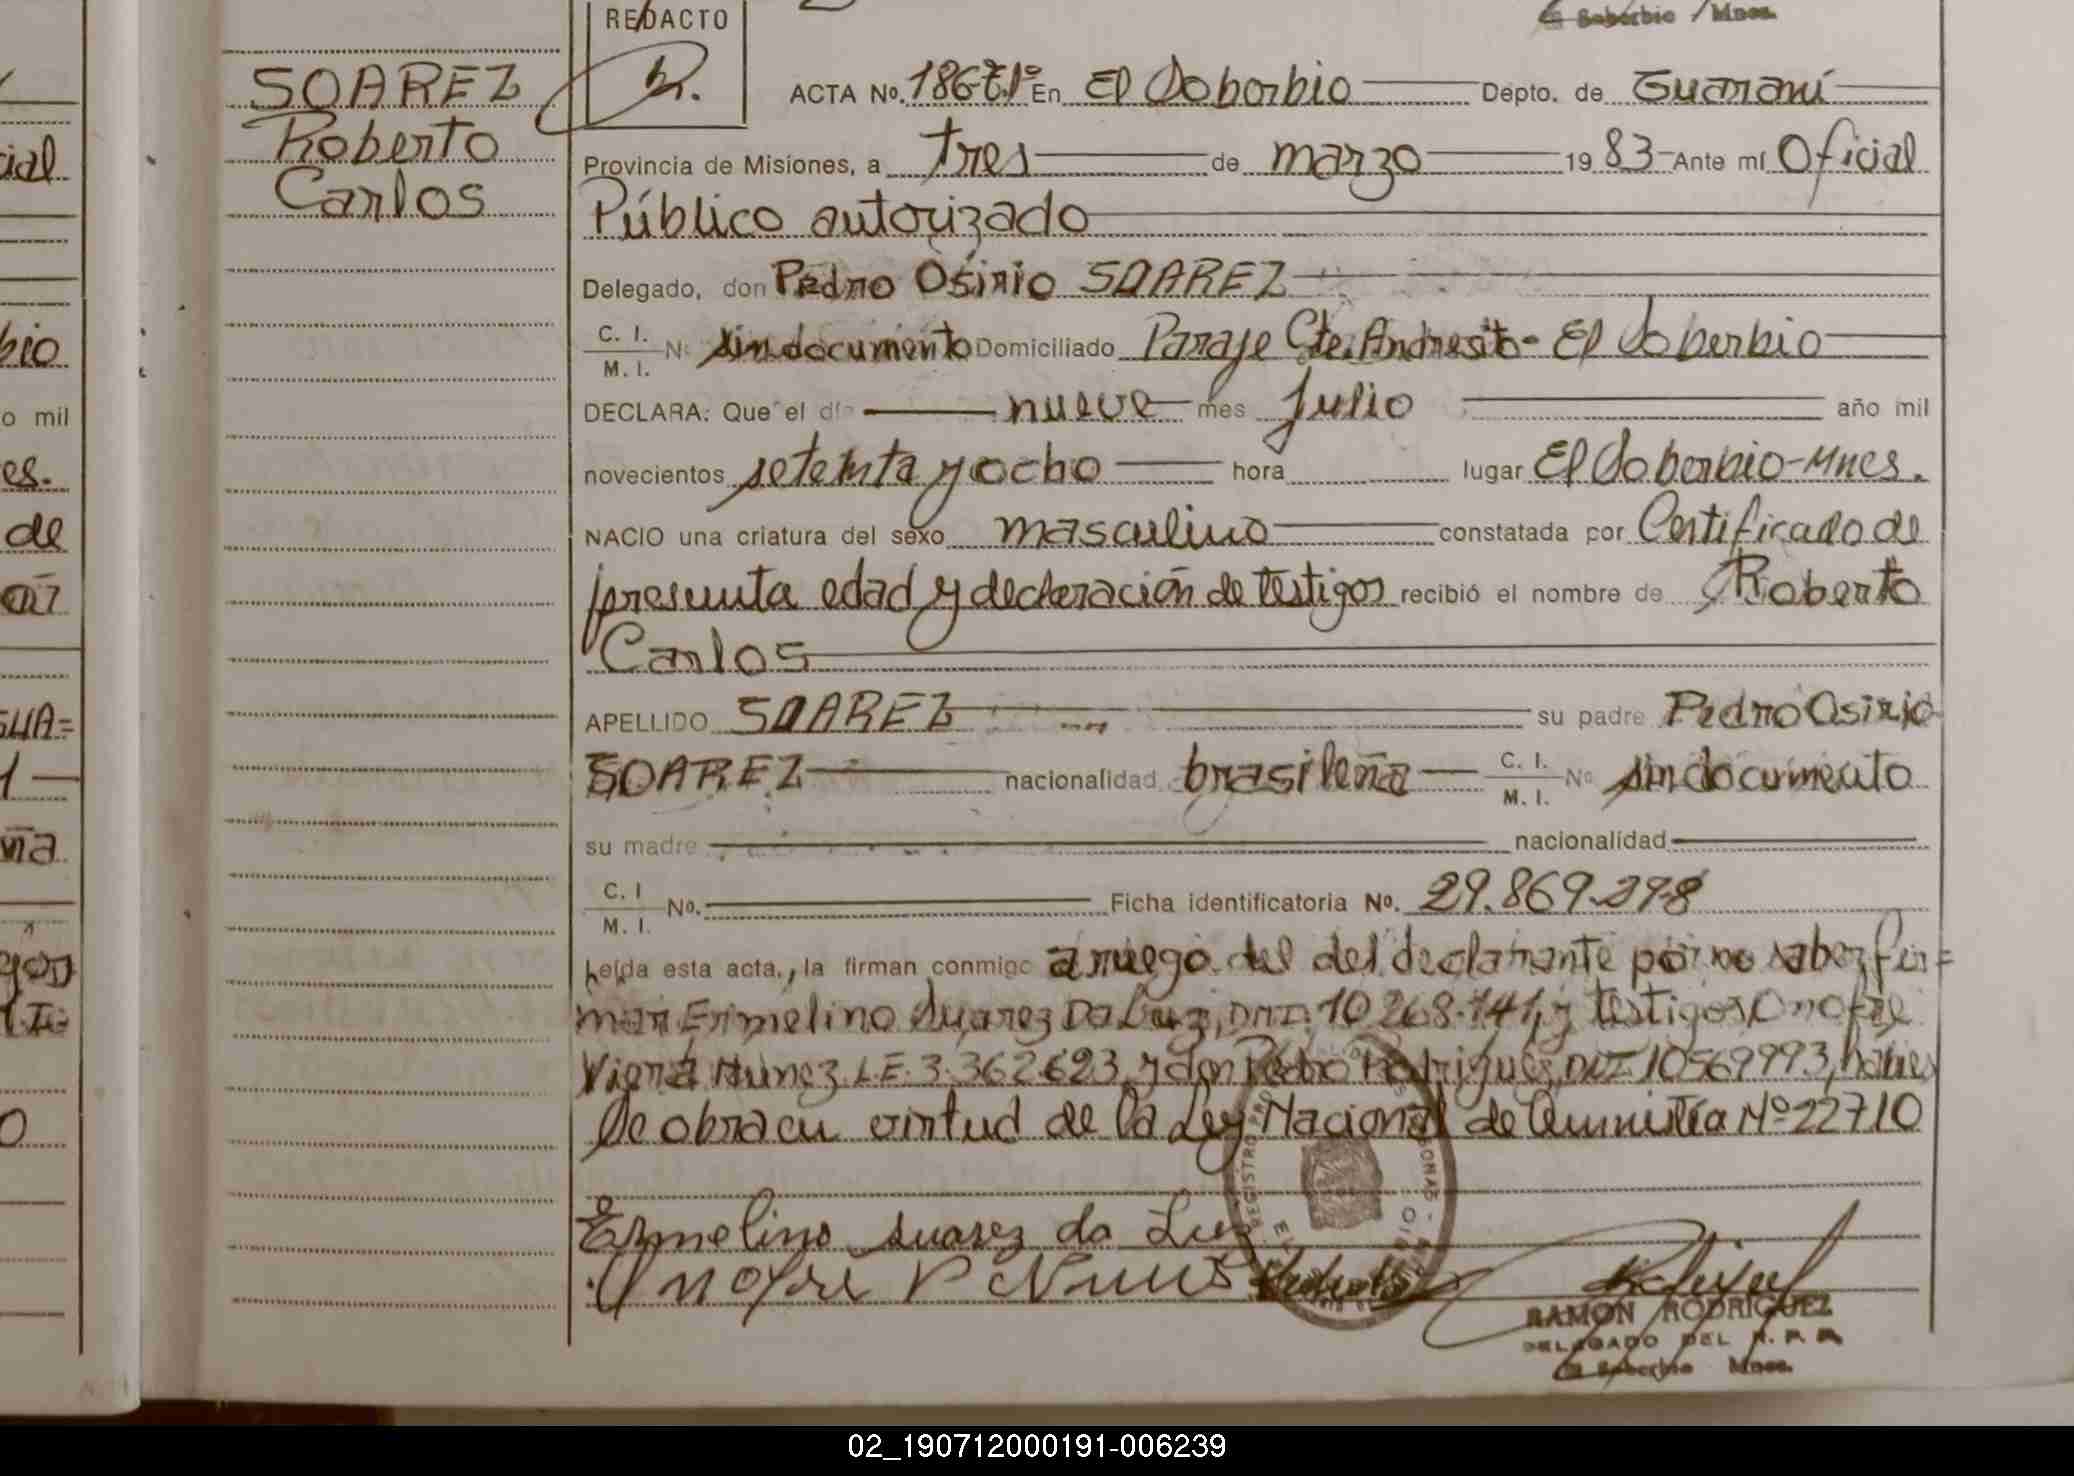 REDACTO
El Soberbio / Mnes.
SOAREZ
Roberto
Carlos
ACTA No. 186 T.1º En El Soberbio Depto. de Guaraní
Provincia de Misiones, a tres de marzo 19 83 Ante mí Oficial
Público autorizado
Delegado, don Pedro Osirio SOAREZ
C. I.
M. I. Nº sin documento Domiciliado Paraje Cte. Andresito - El Soberbio
DECLARA: Que el día nueve mes Julio año mil
novecientos setenta y ocho hora lugar El Soberbio-Mnes.
NACIO una criatura del sexo masculino constatada por Certificado de
presunta edad y declaración de testigos recibió el nombre de Roberto
Carlos
APELLIDO SOAREZ su padre Pedro Osirio
SOAREZ nacionalidad brasileña C. I.
M. I. Nº sin documento
su madre nacionalidad
C. I
M. I. No. Ficha identificatoria No. 29.869.298
Leída esta acta, la firman conmigo a ruego del del declarante por no saber fir=
mar Ermelino Suarez Da Luz, DNI. 10 268.741, y testigos Onofre
Viera Nunez L.E. 3.362623, y don Pedro Rodriguez, DNI 10569993,
Se obra en virtud de la Ley Nacional de Amnistía Nº 22710
Ermelino suarez da Luz
Onofre V Nunes
RAMON RODRIGUEZ
DELEGADO DEL R. P. P.
El Soberbio Mnes.
ial
bio
o mil
es.
de
GUA=
ña
02_190712000191-006239